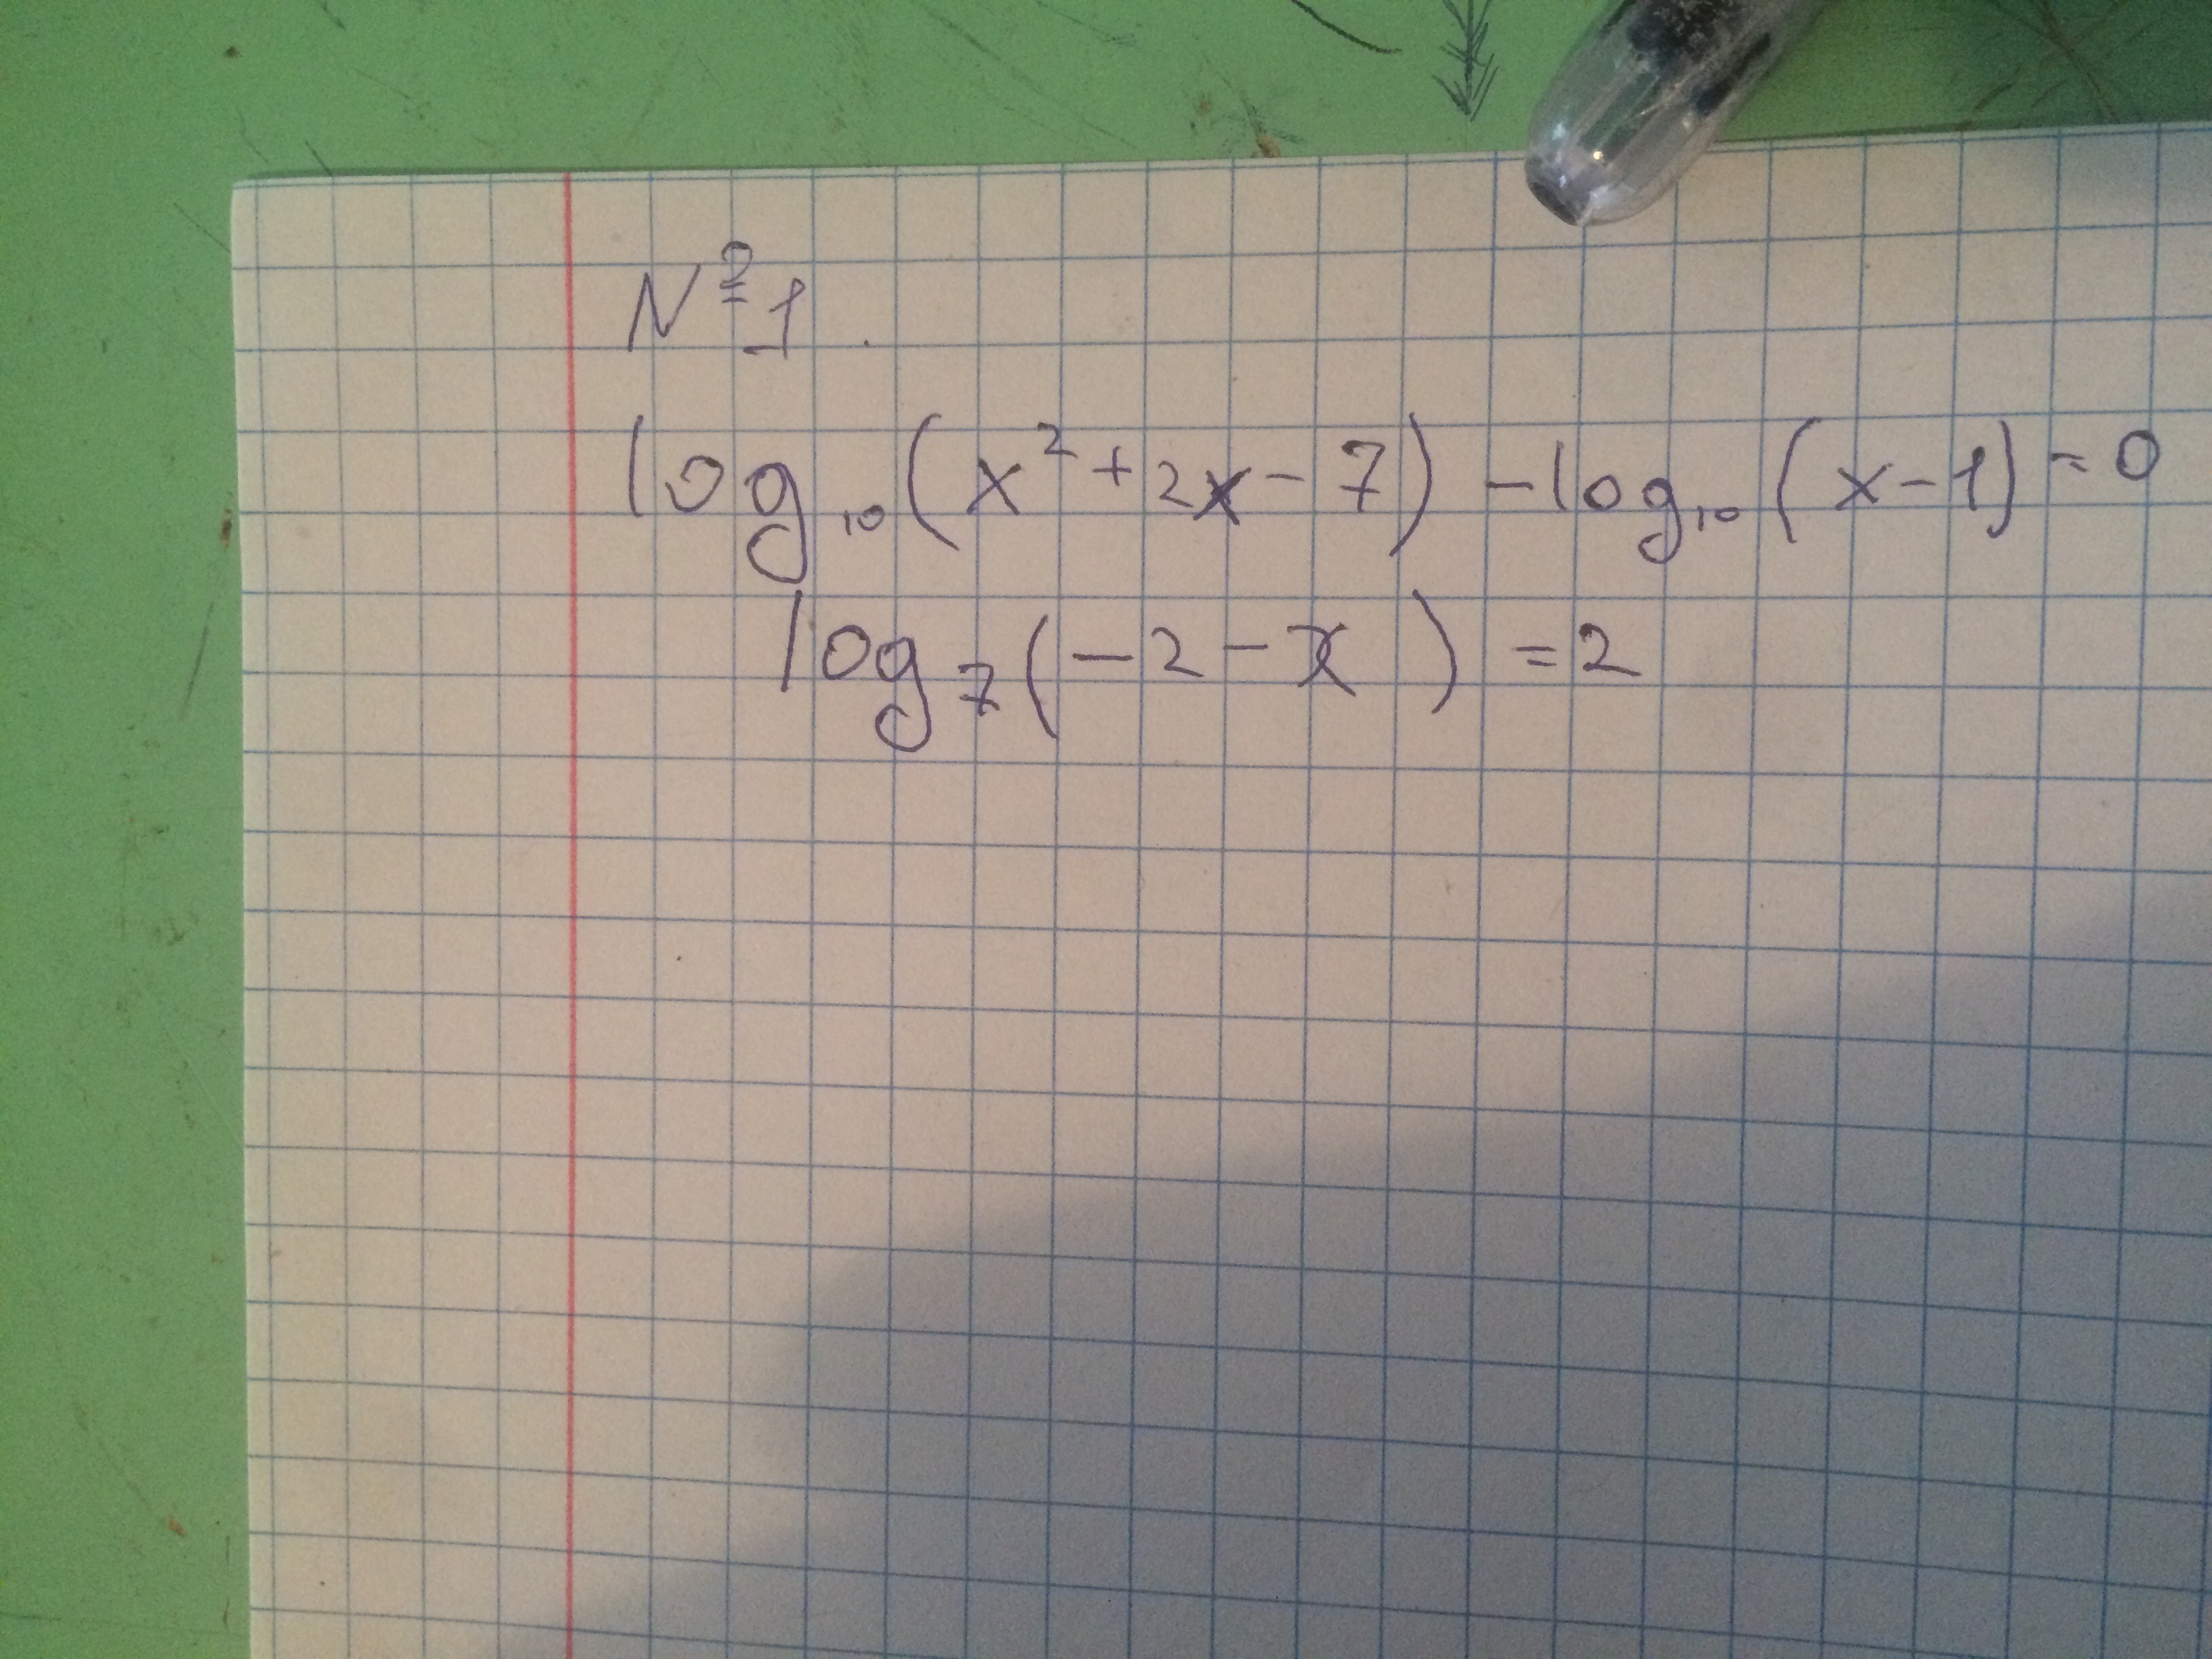 №1.
log₁₀(x²+2x-7)-log₁₀(x-1)=0
log₇(-2-x)=2